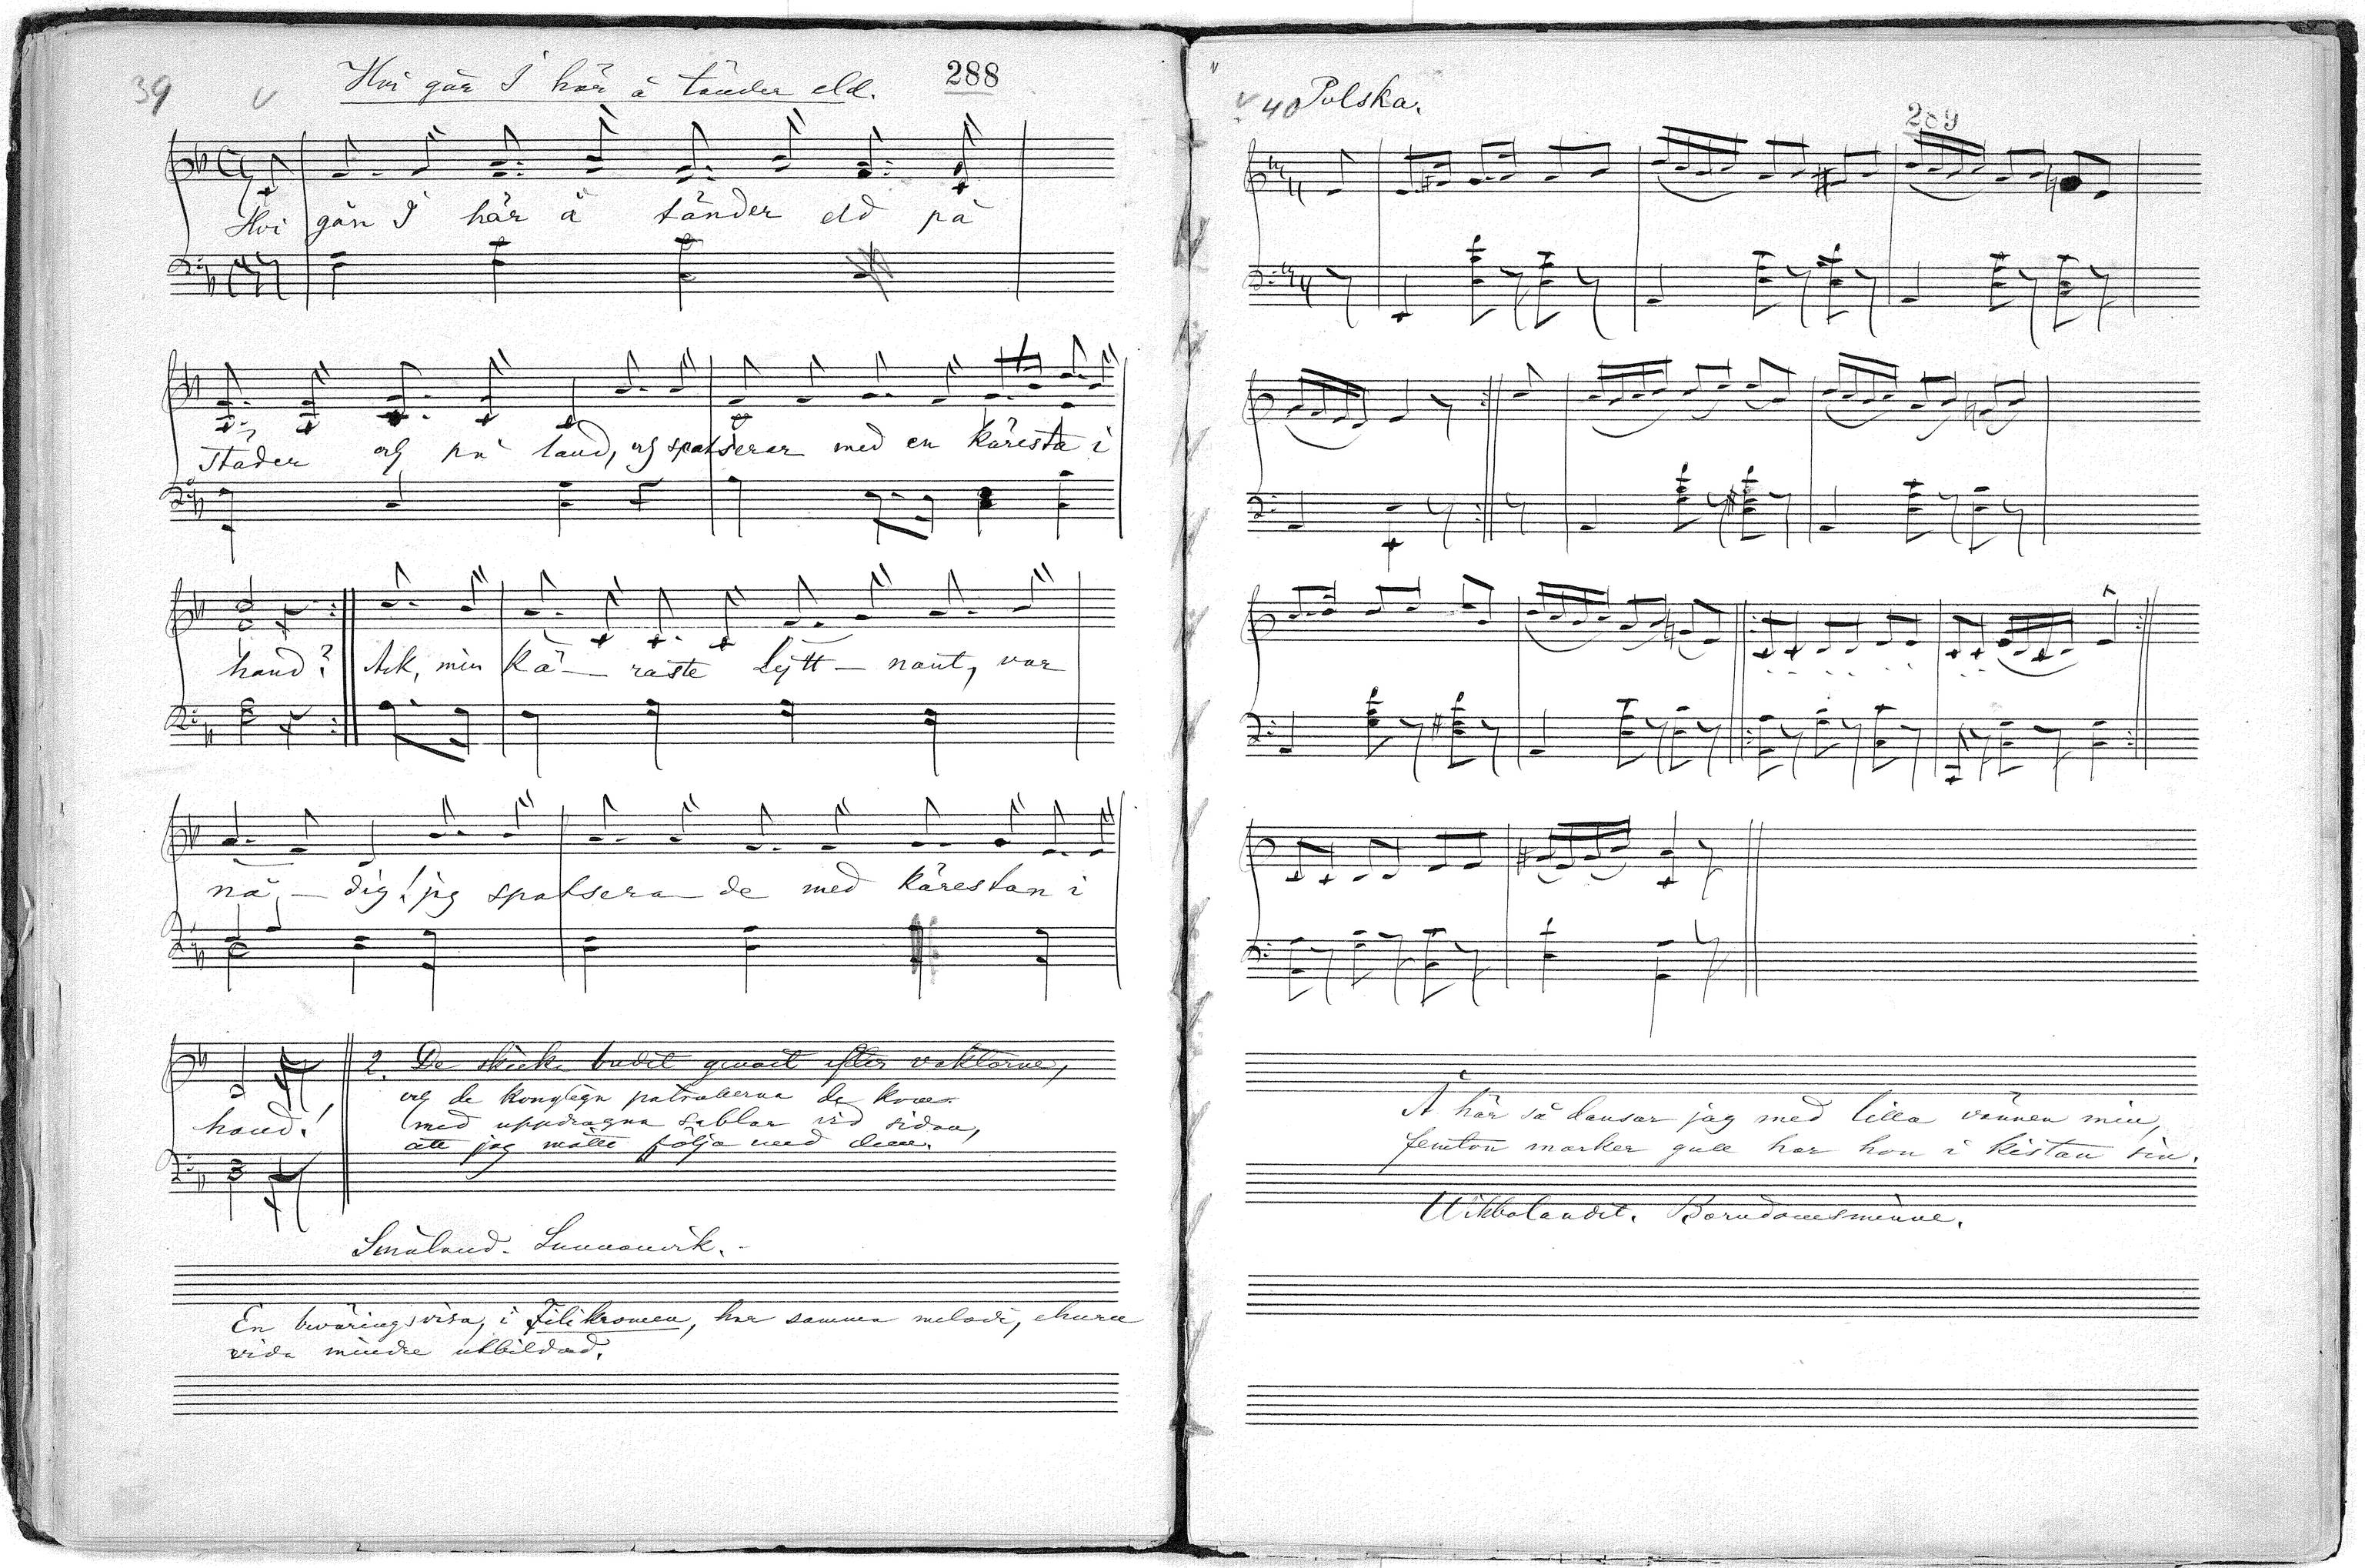 39
Hvi går I här å tänder eld.
288
Hvi går I här å tänder eld på
städer og på land, og spatserar med en käresta i
hand? Ack, min kä - raste löjtt - nant, var
nå - dig! jag spatsera - de med kärestan i
hand!
2. De skicka budet genast efter vaktarne,
og de kongliga patrullerna de kom
med uppdragna sablar vid sidan,
att jag måtte följa med dem.
Småland. Sunnanvik.
En beväringsvisa, i Filikromen, har samma melodi, ehuru
vida mindre utbildad.
40 Polska.
289
Å här så dansar jag med lilla vännen min,
femton marker gull har hon i kistan sin.
Wikbolandet. Barndomsminne.